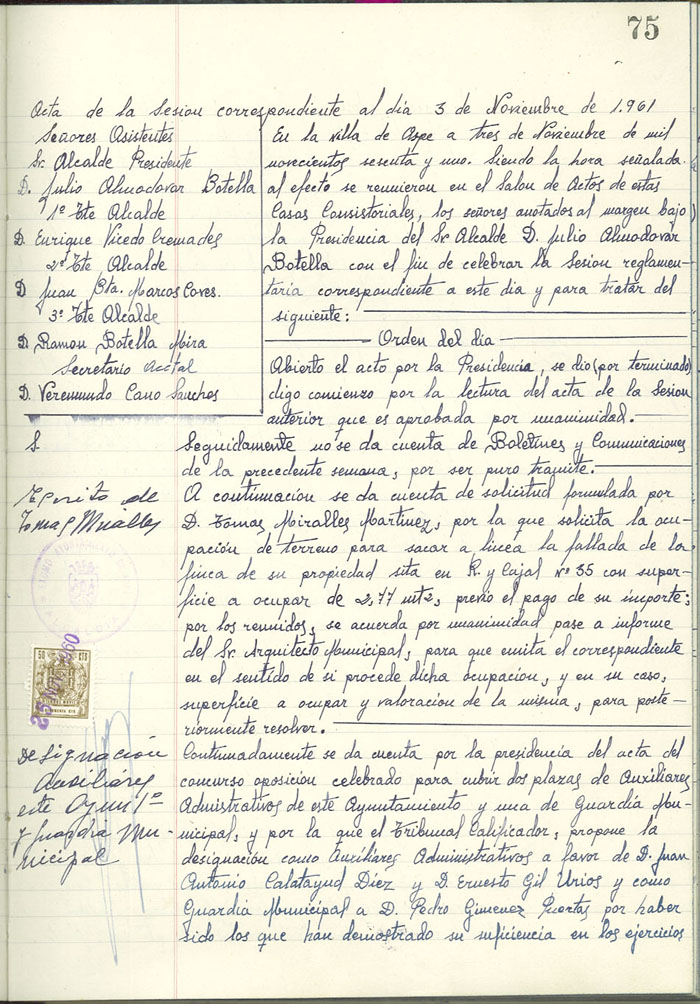 75
Acta de la Sesion correspondiente al dia 3 de Noviembre de 1.961
Señores Asistentes
Sr. Alcalde Presidente
D. Julio Almodovar Botella
1º Tte Alcalde
D. Enrique Vicedo Cremades
2º Tte Alcalde
D Juan Bta. Marcos Caves.
3º Tte Alcalde
D. Ramon Botella Mira
Secretario Acctal
D. Veremundo Cano Sanchos
En la villa de Aspe a tres de Noviembre de mil
novecientos sesenta y uno. Siendo la hora señalada
al efecto se reunieron en el Salon de Actos de estas
Casas Consistoriales, los señores anotados al margen bajo
la Presidencia del Sr. Alcalde D. Julio Almodovar
Botella con el fin de celebrar la Sesion reglamen-
taria correspondiente a este dia y para tratar del
siguiente:
Orden del dia
Abierto el acto por la Presidencia, se dio (por terminado)
digo comienzo por la lectura del acta de la Sesion
anterior que es aprobada por unanimidad.
S
Seguidamente no se da cuenta de Boletines y Comunicaciones
de la precedente semana, por ser puro tramite.
Escrito de
Tomas Miralles
A continuación se da cuenta de solicitud formulada por
D. Tomas Miralles Martinez, por la que solicita la ocu-
pación de terreno para sacar a linea la fallada de la
finca de su propiedad sita en R. y Cajal nº 35 con super-
ficie a ocupar de 2,77 mt2, previo el pago de su importe;
por los reunidos, se acuerda por unanimidad pase a informe
del Sr. Arquitecto Municipal, para que emita el correspondiente
en el sentido de si procede dicha ocupacion, y en su caso,
superficie a ocupar y valoracion de la misma, para poste-
riormente resolver.
50 CTS
25 1960
Designación
Auxiliares
este Ayunt.º
y guardia Mu-
nicipal
Continuadamente se da cuenta por la presidencia del acta del
concurso oposición celebrado para cubrir dos plazas de Auxiliares
Administrativos de este Ayuntamiento y una de Guardia Mu-
nicipal, y por la que el Tribunal Calificador, propone la
designación como Auxiliares Administrativos a favor de D. Juan
Antonio Calatayud Diez y D. Ernesto Gil Urios y como
Guardia Municipal a D. Pedro Gimenez Puertas por haber
sido los que han demostrado su suficiencia en los ejercicios